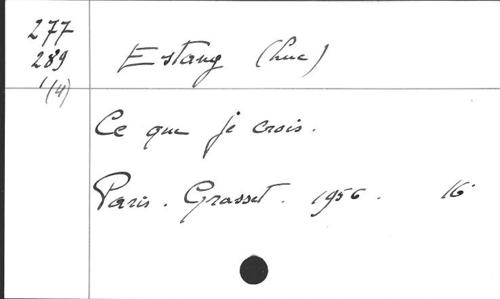 277
289
1(4)
Estang (Luc)
Ce que je crois.
Paris. Grasset. 1956. 16°